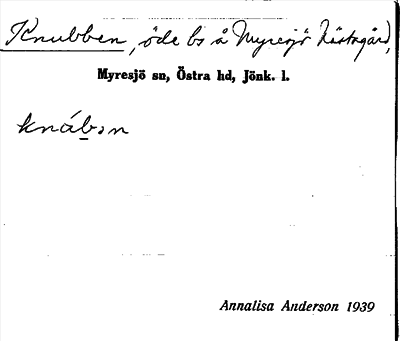 Knubben, öde bs å Myresjö Kärragård,
Myresjö sn, Östra hd, Jönk. l.
knáb̲ən
Annalisa Anderson 1939